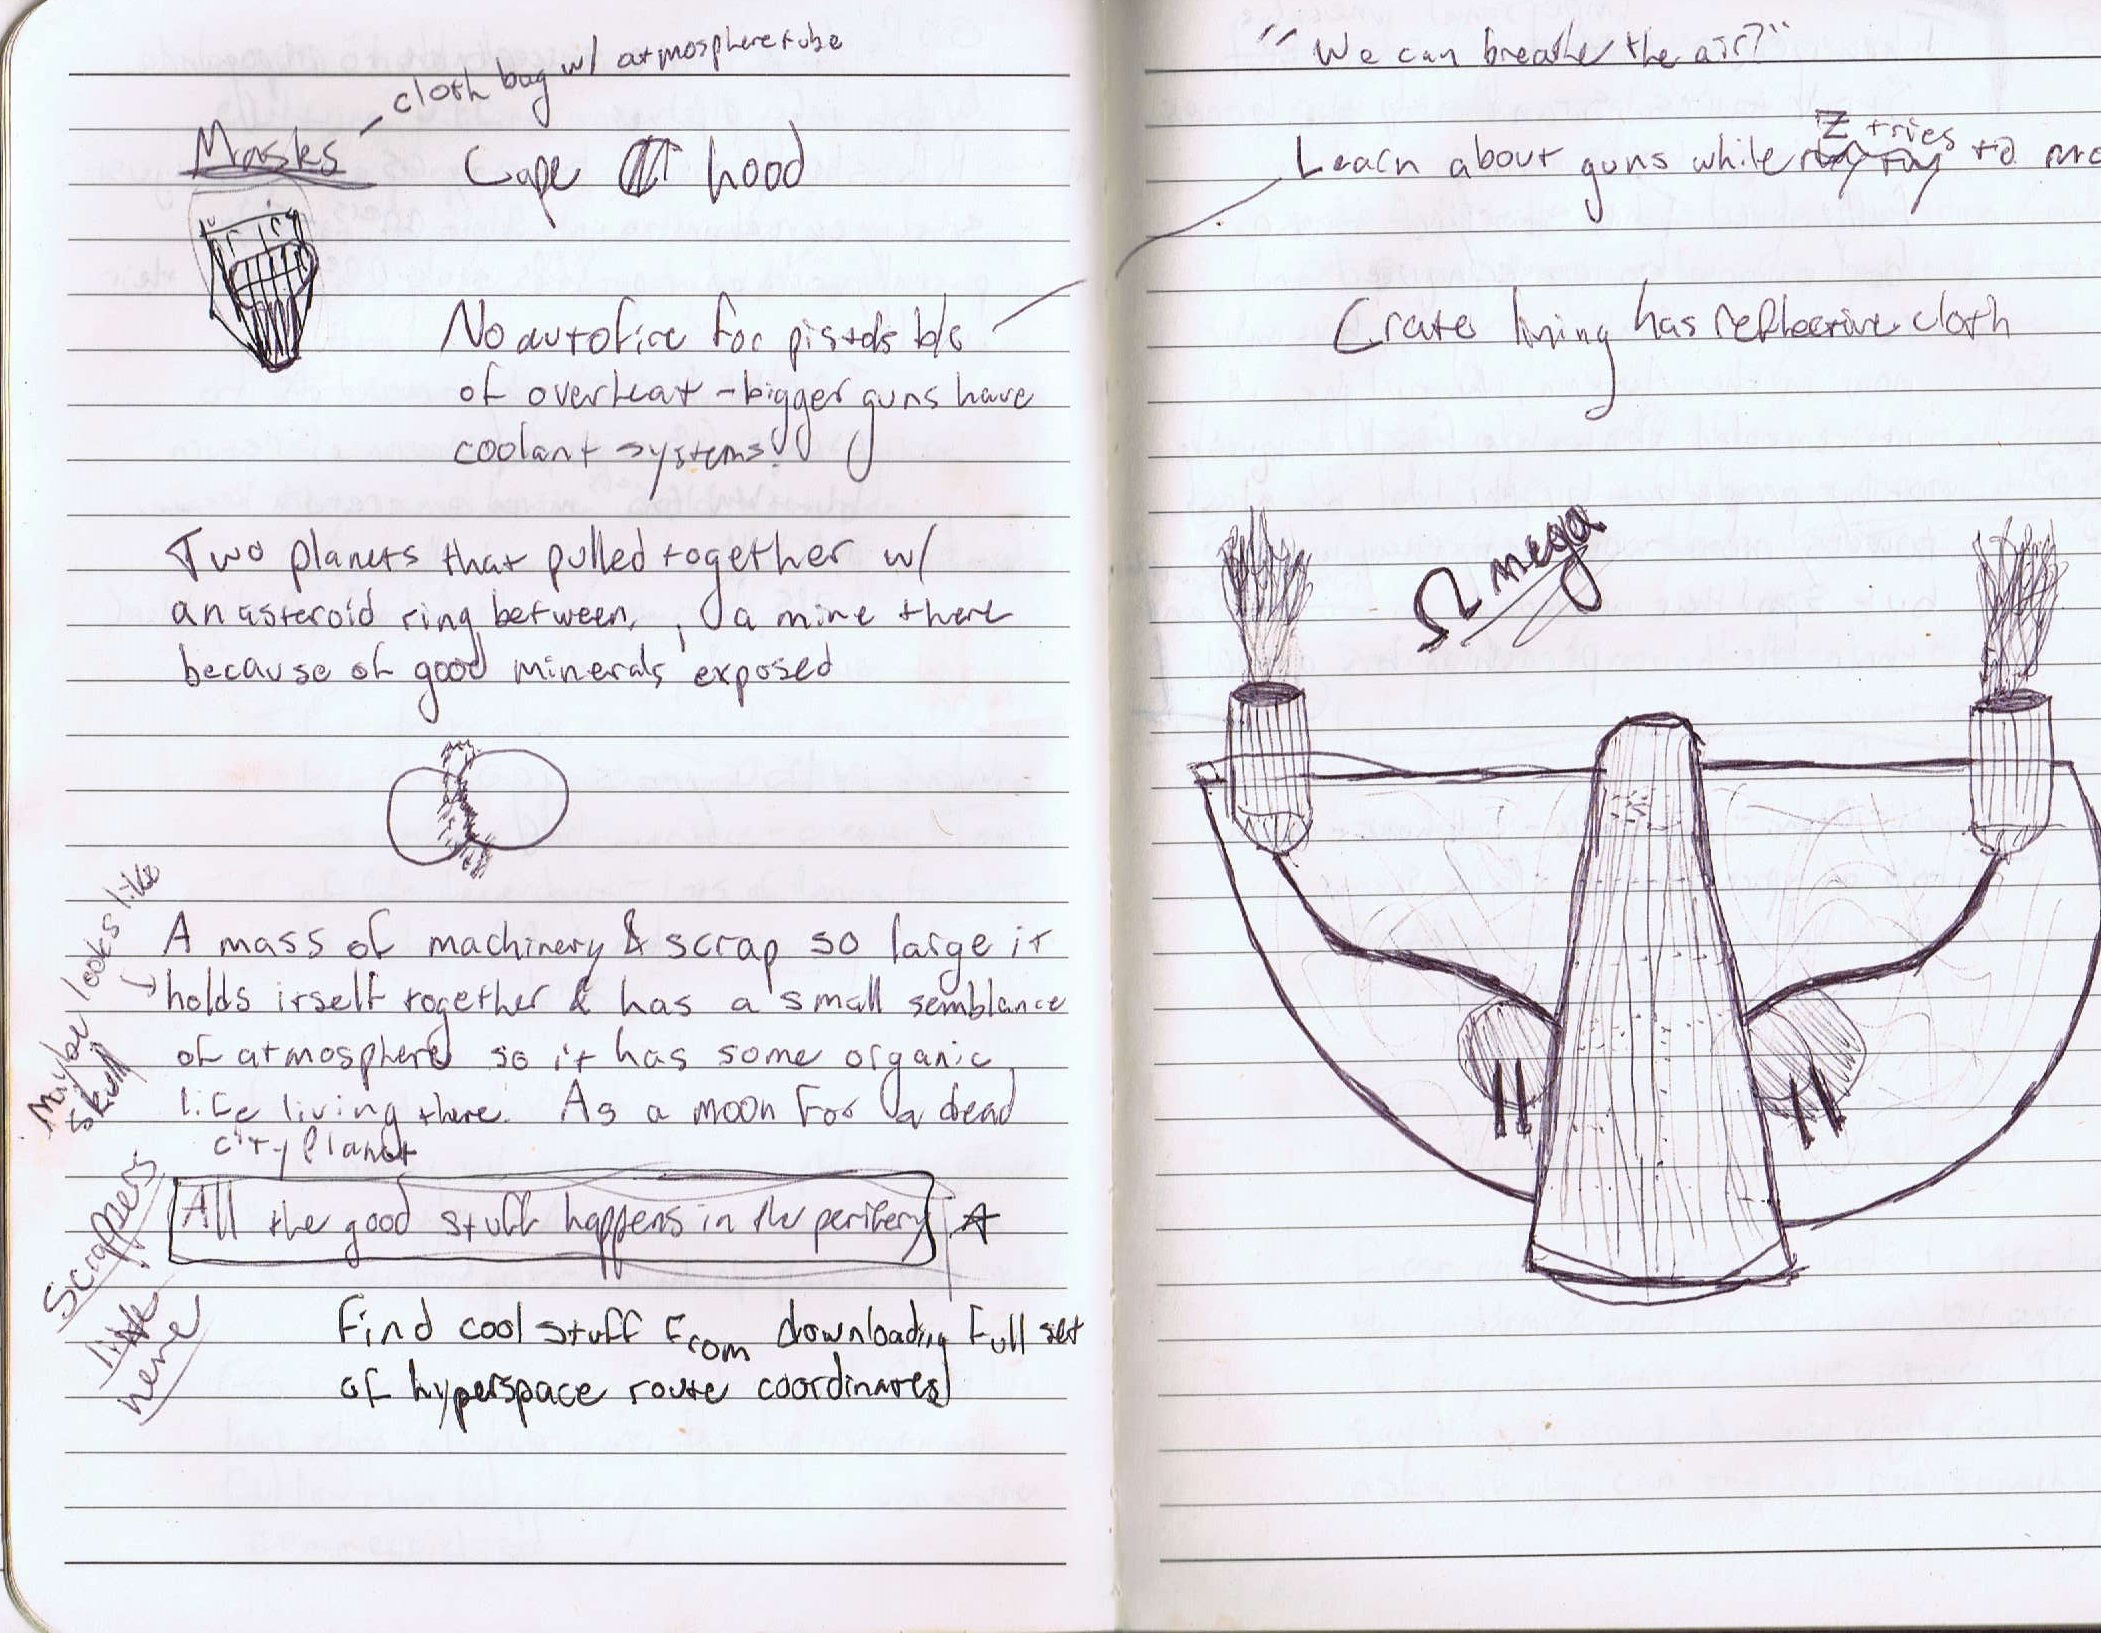 cloth bag w/ atmosphere tube
Masks
Cape hood
No autofire for pistols b/c
of overheat - bigger guns have
coolant systems!
Two planets that pulled together w/
an asteroid ring between, a mine there
because of good minerals exposed
Maybe looks like
skull
A mass of machinery & scrap so large it
holds itself together & has a small semblance
of atmosphere so it has some organic
life living there. As a moon for a dead
city planet
Scrappers
live
here
All the good stuff happens in the perifery
Find cool stuff from downloading full set
of hyperspace route coordinates
"We can breathe the air?"
Z tries
Learn about guns while to
Crate lining has reflective cloth
Ωmega